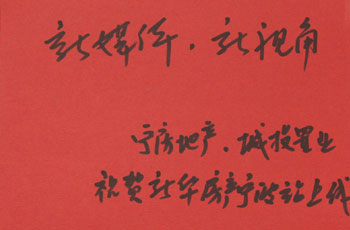 新媒体，新视角
宁房地产、城投置业
祝贺新华房产宁波站上线